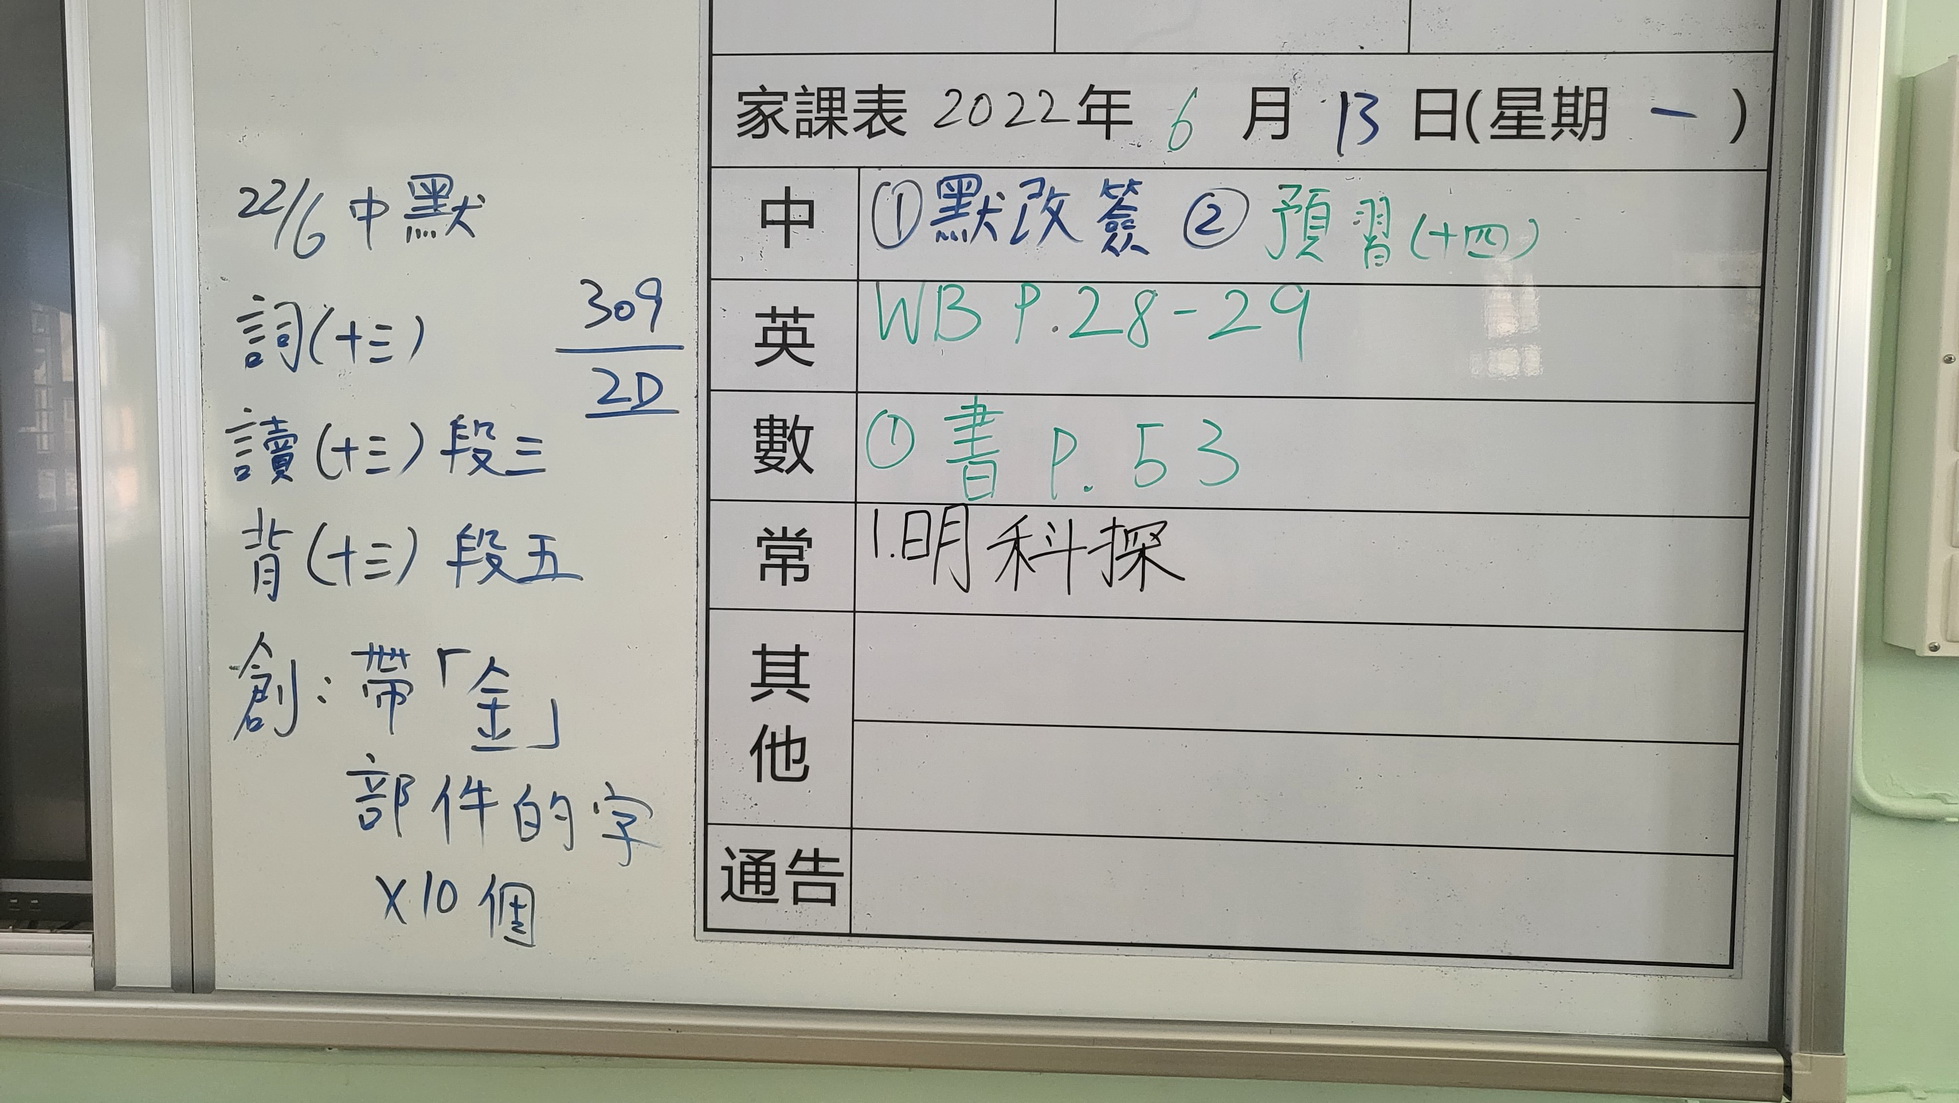 22/6 中默
詞(十三)
309
2D
讀(十三)段三
背(十三)段五
創:帶「金」
部件的字
X10個
家課表 2022年 6 月 13 日(星期 一 )
中 ①默改簽 ②預習(十四)
英 WB P.28-29
數 ①書 P.53
常 1.明科探
其他
通告